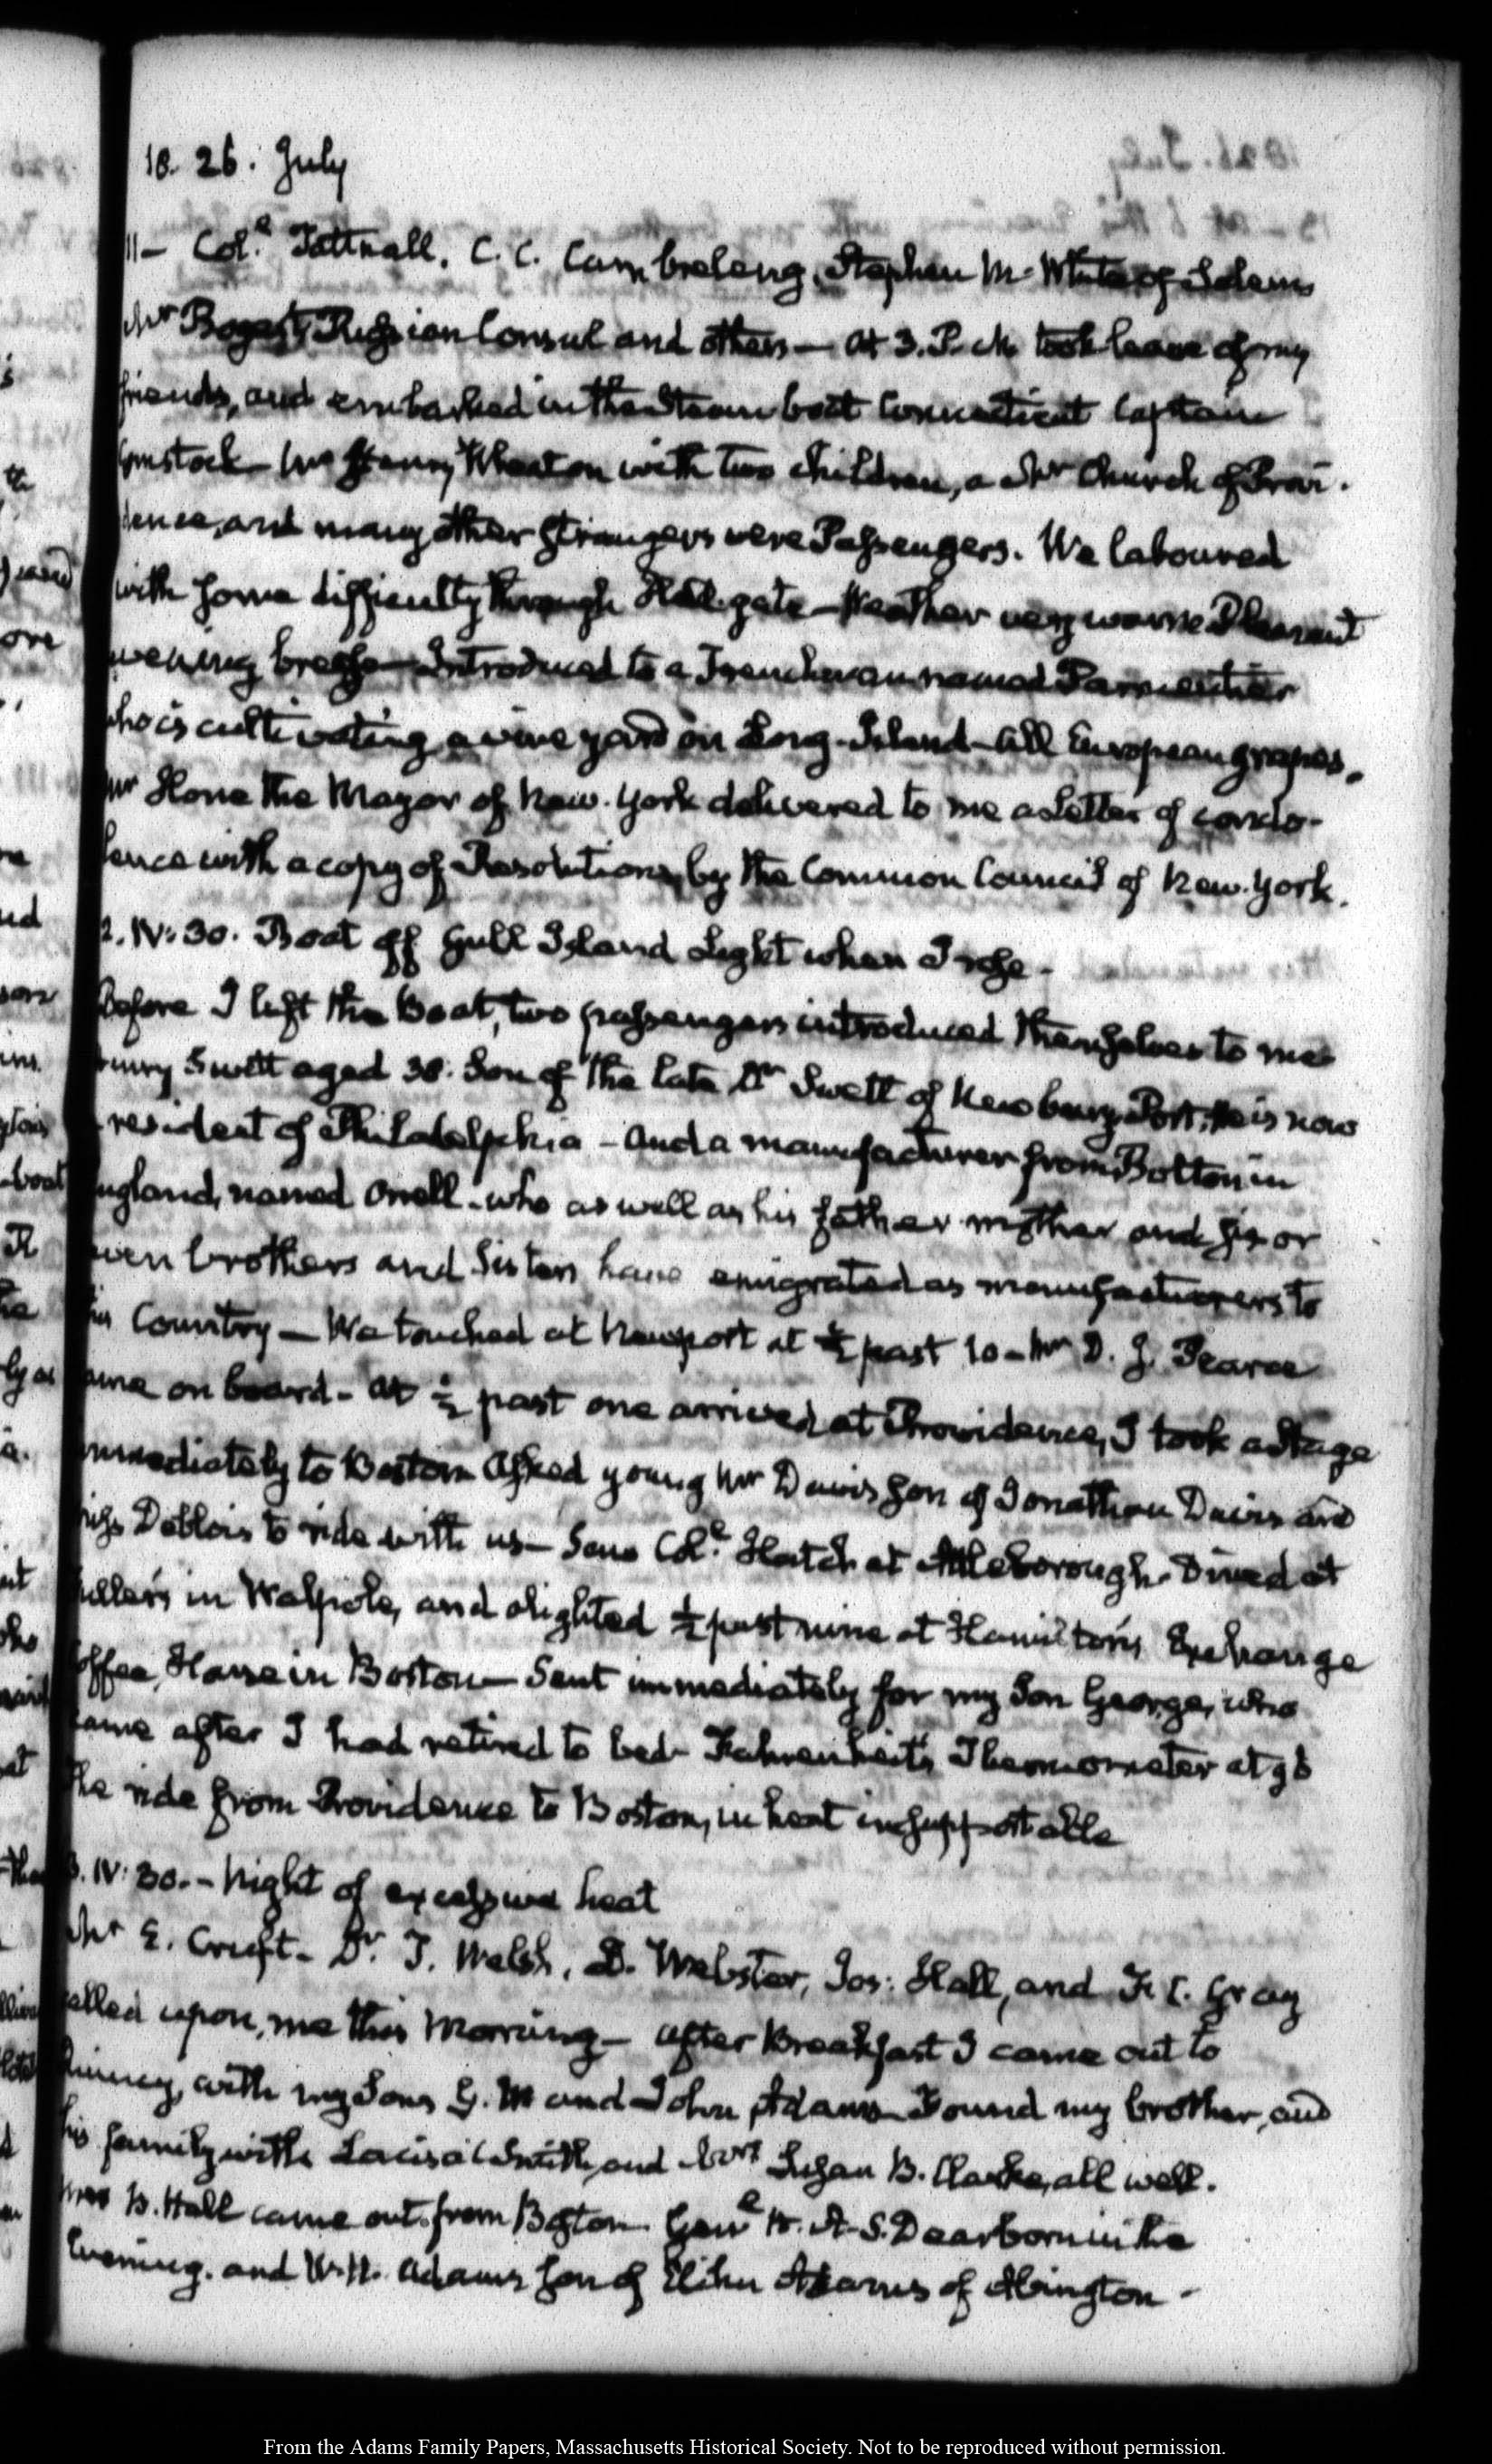 18. 26. July
11 – Col.e Tattnall. C. C. Cambreleng, Stephen M. White of Salem
Mr Bogert Russian Consul and others — At 3. P. M. took leave of my
friends, and embarked in the Steam boat Connecticut Captain
omstock – Mr Henry Wheaton with two children, a Mr Church of Provi-
dence, and many other strangers were Passengers. We laboured
with some difficulty through Hell-gate – Weather very warm Pleasant
evening breeze – Introduced to a Frenchman named Parmentier
who is cultivating a vine yard on Long-Island – all European grapes.
Mr Hone the Mayor of New-York delivered to me a Letter of condo-
lence with a copy of Resolutions by the Common Council of New-York.
2. IV: 30. Boat off Gull Island Light when I rose –
Before I left the Boat, two passengers introduced themselves to me
enry Swett aged 38. Son of the late Dr Swett of Newbury-Port, he is now
resident of Philadelphia – And a manufacturer from Bolton in
ngland, named Orrell – who as well as his father mother and six or
even brothers and Sisters have emigrated as manufacturers to
his Country — We touched at Newport at ½ past 10 – Mr D. J. Pearce
ame on board – At ½ past one arrived at Providence, I took a Stage
mmediately to Boston Asked young Mr Davis son of Jonathan Davis and
iss Deblois to ride with us – Saw Col.e Hatch at Attleborough. Dined at
ullers in Walpole, and alighted ½ past nine at Hamilton's Exchange
offee House in Boston — Sent immediately for my Son George, who
came after I had retired to bed – Fahrenheit's Thermometer at 96
the ride from Providence to Boston, in heat insupportable
3. IV: 30. – Night of excessive heat
Mr E. Cruft – Dr. T. Welsh, D. Webster, Jos: Hall, and F. C. Gray
alled upon me this Morning – After Breakfast I came out to
Quincy, with my Sons G. W and John Adams – Found my brother, and
his family with Louisa C Smith, and Mrs Susan B. Clarke, all well.
Mr J. Hall came out from Boston. Gene H. A. S. Dearborn in the
Evening. and W. H. Adams son of Elihu Adams of Abington –
From the Adams Family Papers, Massachusetts Historical Society. Not to be reproduced without permission.